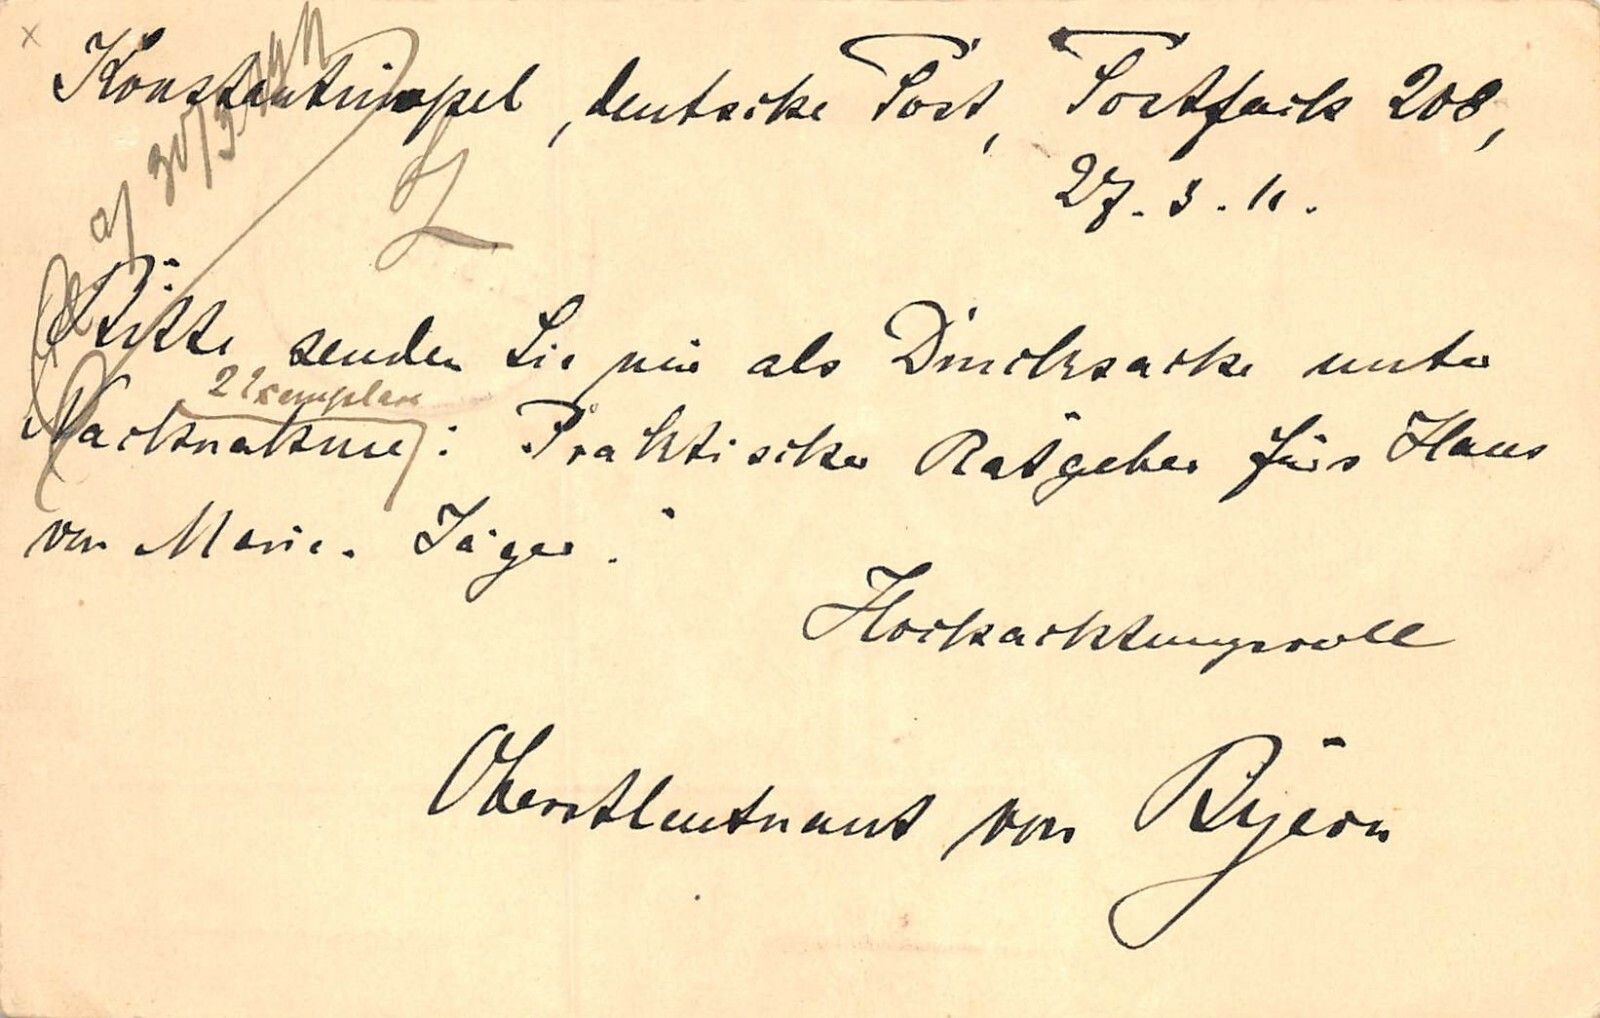 Konstantinopel, deutsche Post, Postfach 208,
27. 3. 11.
Bitte senden Sie mir als Drucksache unter
2 Exemplare
Nachnahme: Praktischer Ratgeber fürs Haus
von Marie Jäger.
Hochachtungsvoll
Oberstleutnant von